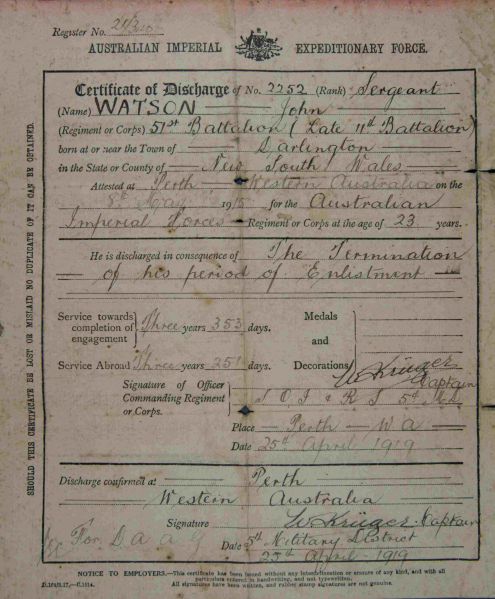 Register No.
AUSTRALIAN IMPERIAL EXPEDITIONARY FORCE.
Certificate of Discharge of No. 2252 (Rank) Sergeant
(Name) WATSON John
(Regiment or Corps) 51st Battalion (Late 11th Battalion)
born at or near the Town of Darlington
in the State or County of New South Wales
Attested at Perth Western Australia on the
8th May 1915 for the Australian
Imperial Forces Regiment or Corps at the age of 23 years.
He is discharged in consequence of The Termination
of his period of Enlistment
Service towards completion of engagement } Three years 353 days.
Service Abroad Three years 251 days.
Medals
and
Decorations
W Krüger
Captain
Signature of Officer
Commanding Regiment
or Corps.
5th M.D.
Place Perth W A
Date 25th April 1919
Discharge confirmed at Perth
Western Australia
Signature W Krüger Captain
For D A A G
Date 5th Military District
25th April 1919
NOTICE TO EMPLOYERS.—This certificate has been issued without any intended erasure of any kind, and with all
particulars entered in handwriting, and not typewritten.
All signatures have been written, and rubber stamp signatures are not genuine.
SHOULD THIS CERTIFICATE BE LOST OR MISLAID NO DUPLICATE OF IT CAN BE OBTAINED.